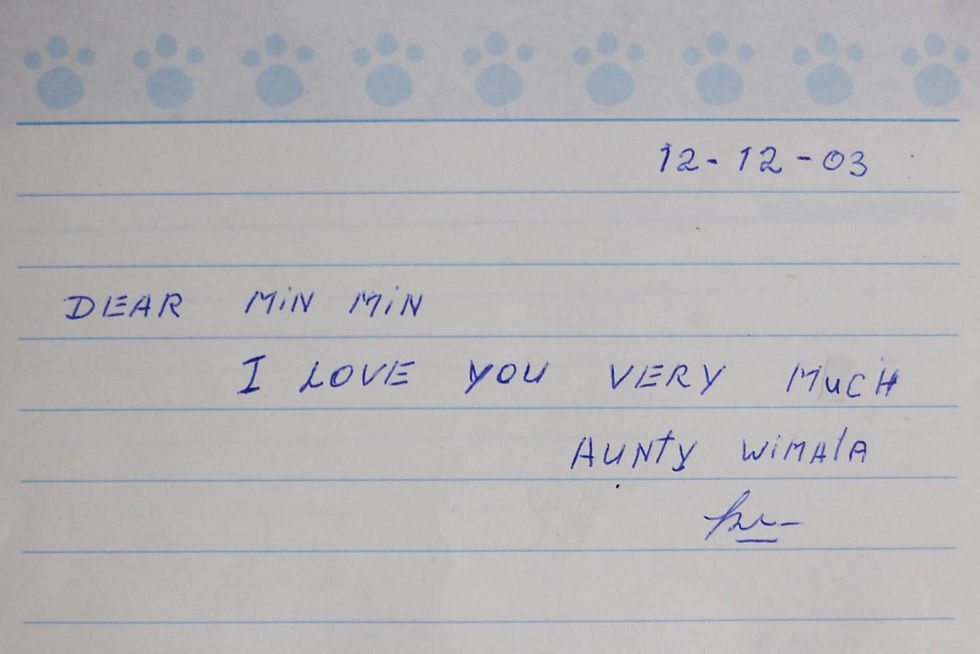 12-12-03
DEAR MiN MiN
I LOVE YOU VERY MuCH
AUNtY WiMAlA